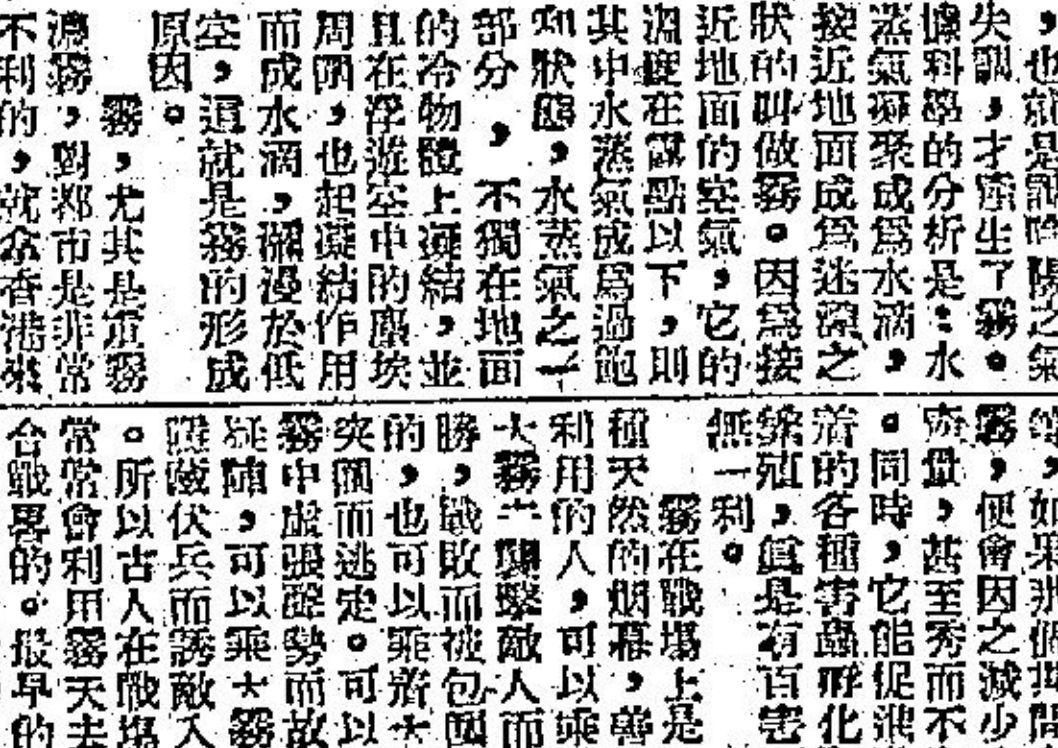 ，也就是調陰陽之氣
失調，才產生了霧。
據科學的分析是：水
蒸氣凝聚成爲水滴，
接近地面成爲迷濛之
狀的叫做霧。因爲接
近地面的空氣，它的
溫度在露點以下，則
其中水蒸氣成爲過飽
和狀態，水蒸氣之一
部分，不獨在地面
的冷物體上凝結，並
且在浮遊空中的塵埃
周圍，也起凝結作用
而成水滴，瀰漫於低
空，這就是霧的形成
原因。
霧，尤其是重霧
濃霧，對都市是非常
不利的，就拿香港來
，如果那個期間
霧，便會因之減少
產量，甚至秀而不
。同時，它能促進
着的各種害蟲孵化
繁殖，眞是有百害
無一利。
霧在戰場上是
種天然的烟幕，善
利用的人，可以乘
大霧去襲擊敵人而
勝，戰敗而被包圍
的，也可以乘着大
突圍而逃走。可以
霧中虛張聲勢而故
疑陣，可以乘大霧
隱蔽伏兵而誘敵入
。所以古人在戰場
常常會利用霧天去
合戰畧的。最早的